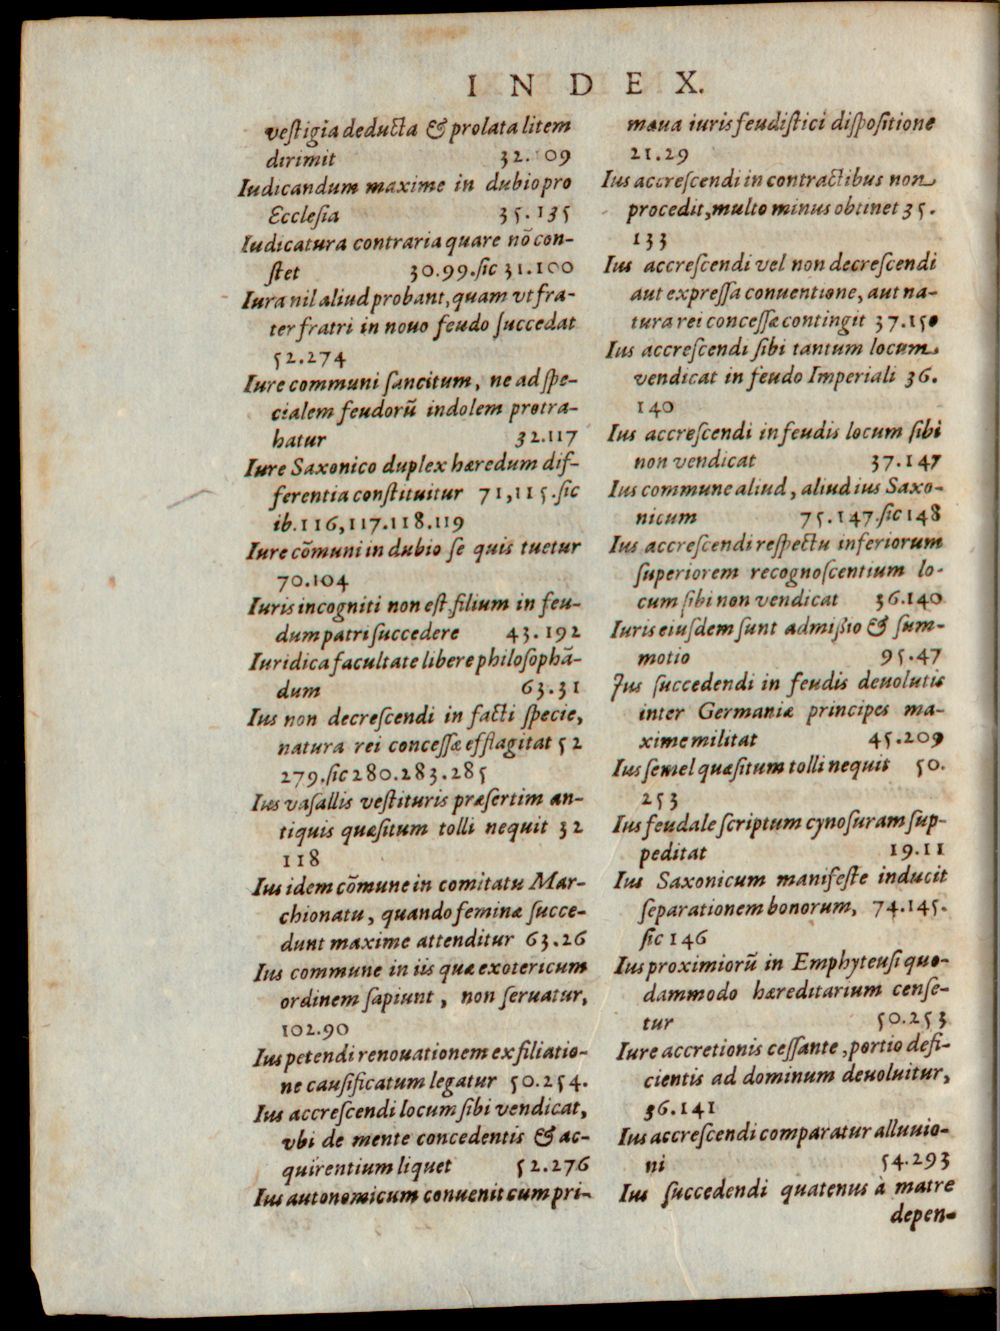 INDEX.
veſtigia deducta & prolata litem
dirimit 32. 109
Iudicandum maxime in dubio pro
Eccleſia 35.135
Iudicatura contraria quare nō con-
ſtet 30.99.ſic 31.100
Iura nil aliud probant, quam vt fra-
ter fratri in nouo feudo ſuccedat
52.274
Iure communi ſancitum, ne ad ſpe-
cialem feudorū indolem protra-
hatur 32.117
Iure Saxonico duplex hæredum dif-
ferentia conſtituitur 71,115.ſic
ib.116,117.118.119
Iure cōmuni in dubio ſe quis tuetur
70.104
Iuris incogniti non eſt filium in feu-
dum patri ſuccedere 43.192
Iuridica facultate libere philoſophā-
dum 63.31
Ius non decreſcendi in facti ſpecie,
natura rei conceſſæ efflagitat 52
279.ſic 280.283.285
Ius vaſallis veſtituris præſertim an-
tiquis quæſitum tolli nequit 32
118
Ius idem cōmune in comitatu Mar-
chionatu, quando feminæ ſucce-
dunt maxime attenditur 63.26
Ius commune in iis quæ exotericum
ordinem ſapiunt, non ſeruatur,
102.90
Ius petendi renouationem ex filiatio-
ne cauſificatum legatur 50.254.
Ius accreſcendi locum ſibi vendicat,
vbi de mente concedentis & ac-
quirentium liquet 52.276
Ius autonomicum conuenit cum pri-
mæua iuris feudiſtici diſpoſitione
21.29
Ius accreſcendi in contractibus non
procedit, multo minus obtinet 35.
133
Ius accreſcendi vel non decreſcendi
aut expreſſa conuentione, aut na-
tura rei conceſſæ contingit 37.150
Ius accreſcendi ſibi tantum locum
vendicat in feudo Imperiali 36.
140
Ius accreſcendi in feudis locum ſibi
non vendicat 37.147
Ius commune aliud, aliud ius Saxo-
nicum 75.147.ſic 148
Ius accreſcendi reſpectu inferiorum
ſuperiorem recognoſcentium lo-
cum ſibi non vendicat 36.140
Iuris eiuſdem ſunt admißio & ſum-
motio 95.47
Jus ſuccedendi in feudis deuolutis
inter Germaniæ principes ma-
xime militat 45.209
Ius ſemel quæſitum tolli nequit 50.
253
Ius feudale ſcriptum cynoſuram ſup-
peditat 19.11
Ius Saxonicum manifeſte inducit
ſeparationem bonorum, 74.145.
ſic 146
Ius proximiorū in Emphyteuſi quo-
dammodo hæreditarium cenſe-
tur 50.253
Iure accretionis ceſſante, portio defi-
cientis ad dominum deuoluitur,
36.141
Ius accreſcendi comparatur alluuio-
ni 54.293
Ius ſuccedendi quatenus à matre
depen-